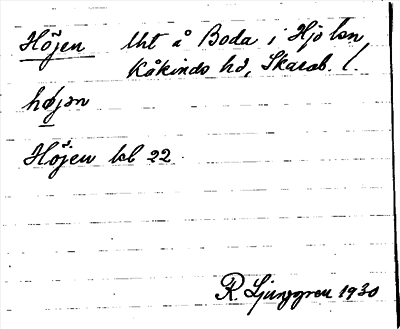 Höjen lht å Boda i Hjo lsn
Kåkinds hd, Skarab. l.
højən
Höjen kb 22
R. Ljunggren 1930